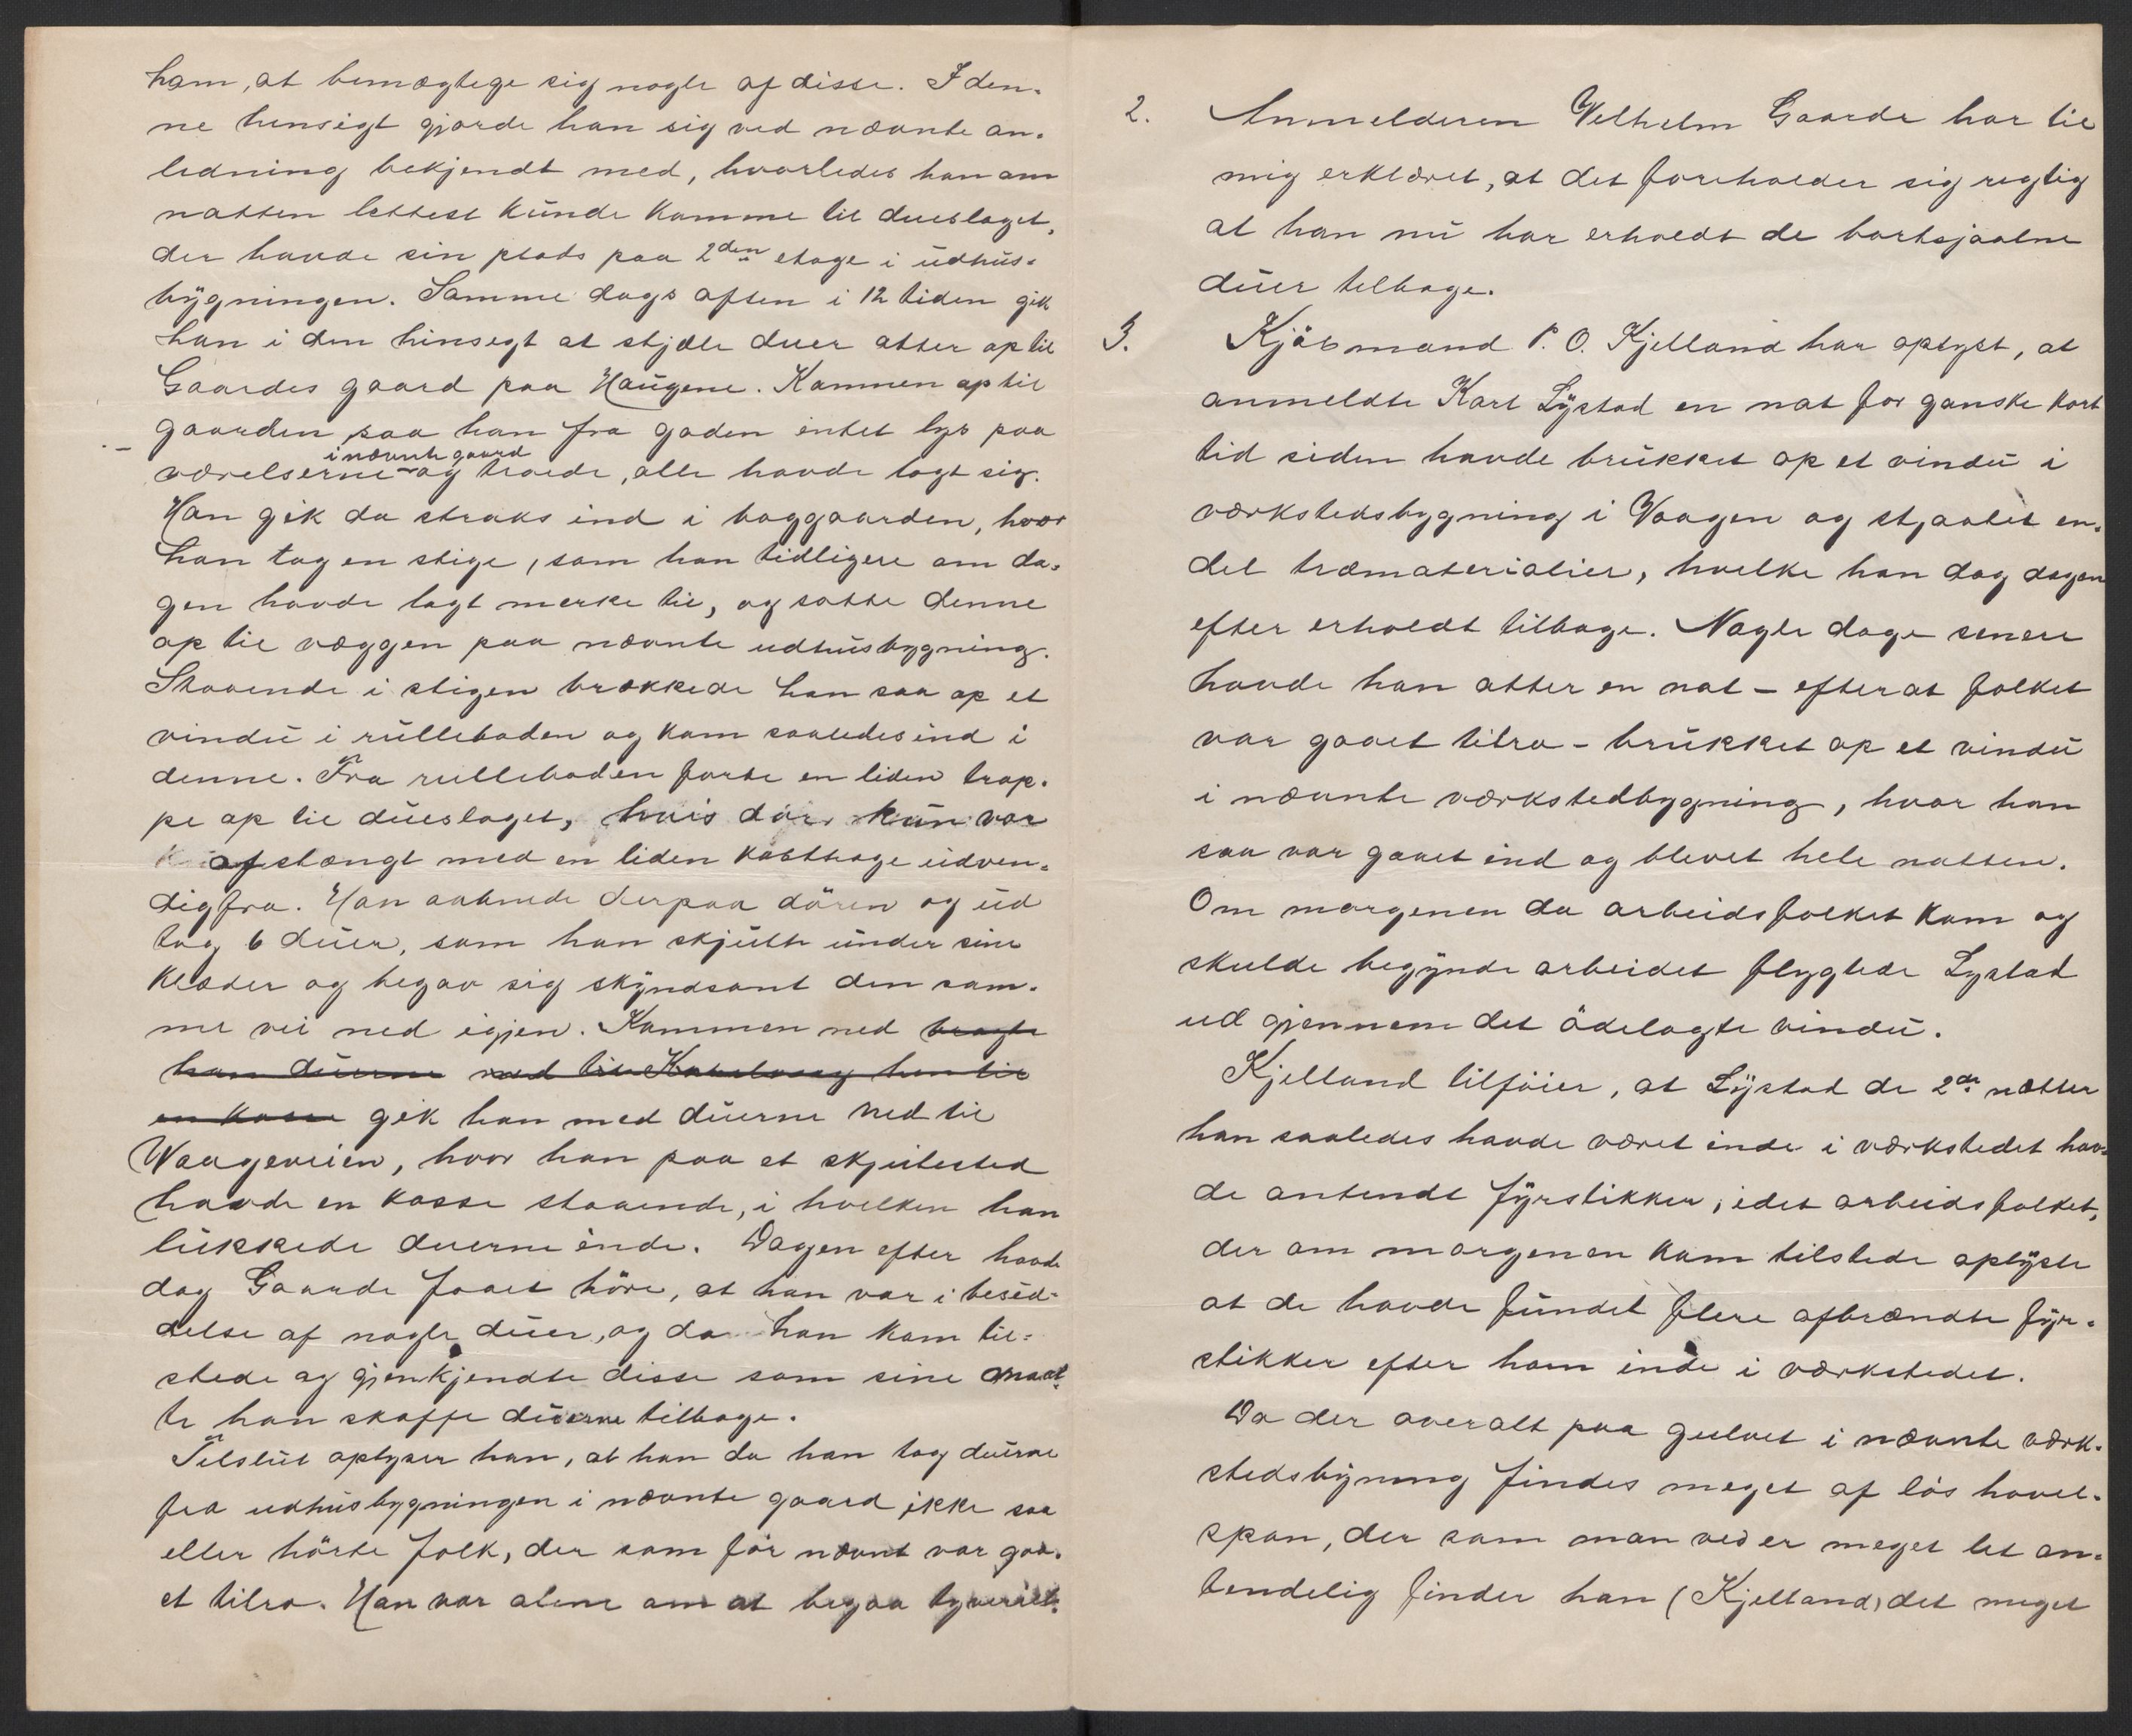 ham, at bemægtege sig nogle af disse. I den-
ne hensigt gjorde han sig ved nævnte an-
ledning bekjendt med, hvorledes han om
natten lettest kunde komme til dueslaget,
der havde sin plads paa 2den etage i udhus-
bygningen. Samme dags aften i 12 tiden gik
han i den hinsegt at stjæle duer atter op til
Gaardes gaard paa Haugene. Kommen op til
gaarden saa han fra gaden intet lys paa
værelserne i nævnte gaard og troede, alle havde lagt sig.
Han gik da straks ind i baggaarden, hvor
han tog en stige, som han tidligere om da-
gen havde lagt merke til, og satte denne
op til væggen paa nævnte udhusbygning.
Staaende i stigen brækkede han saa op et
vindu i rulleboden og kom saaledes ind i
denne. Fra rulleboden førte en liden trap-
pe op til dueslaget, hvis dør kun var
afstængt med en liden kasthage udven-
digfra. Han aabnede derpaa døren og ud
tog 6 duer, som han skjulte under sine
klæder og begav sig skyndsomt den sam-
me vei ned igjen. Kommen ned bragte
han duerne ned til hen til
en kasse gik han med duerne ned til
Waageveien, hvor han paa et skjulested
havde en kasse staaende, i hvelken han
lukkede duerne inde. Dagen efter havde
dog Gaarde faaet höre, at han var i besid-
delse af nogle duer, og da han kom til-
stede og gjenkjendte disse som sine maat-
te han skaffe duerne tilbage.
Tilslut oplyser han, at han da han tog duerne
fra udhusbygningen i nævnte gaard ikke saa
eller hörte folk, der som før nævnt var gaa-
et tilro. Han var alene om at begaa tyveriet.
2. Anmelderen Velhelm Gaarde har til
mig erklæret, at det foreholder sig regtig
at han nu har erholdt de bortsjaalne
duer telbage.
3. Kjöbmand P. O. Kjelland har oplyst, at
anmeldte Karl Lystad en nat for ganske kort
tid siden havde brukket op et vindu i
værkstedsbygning i Vaagen og stjaalet en-
del træmaterialier, hvelke han dog dagen
efter erholdt tilbage. Nogle dage senere
havde han atter en nat – efter at folket
var gaaet tilro – brukket op et vindu
i nævnte værkstedbygning, hvor han
saa var gaaet ind og blevet hele natten.
Om morgenen da arbeidsfolket kom og
skulde begynde arbeidet flygtede Lystad
ud gjennem det ödelagte vindu.
Kjelland tilföier, at Lystad de 2de nætter
han saaledes havde været inde i værkstedet hav-
de antendt fyrstikker, idet arbeidsfolket,
der om morgenen kom tilstede oplyste
at de havde fundet flere afbrændte fyr-
stikker efter ham inde i værkstedet.
Da der overalt paa gulvet i nævnte værk-
stedsbyning findes meget af lös hövel-
span, der som man ved er meget let an-
tendelig finder han (Kjelland) det meget